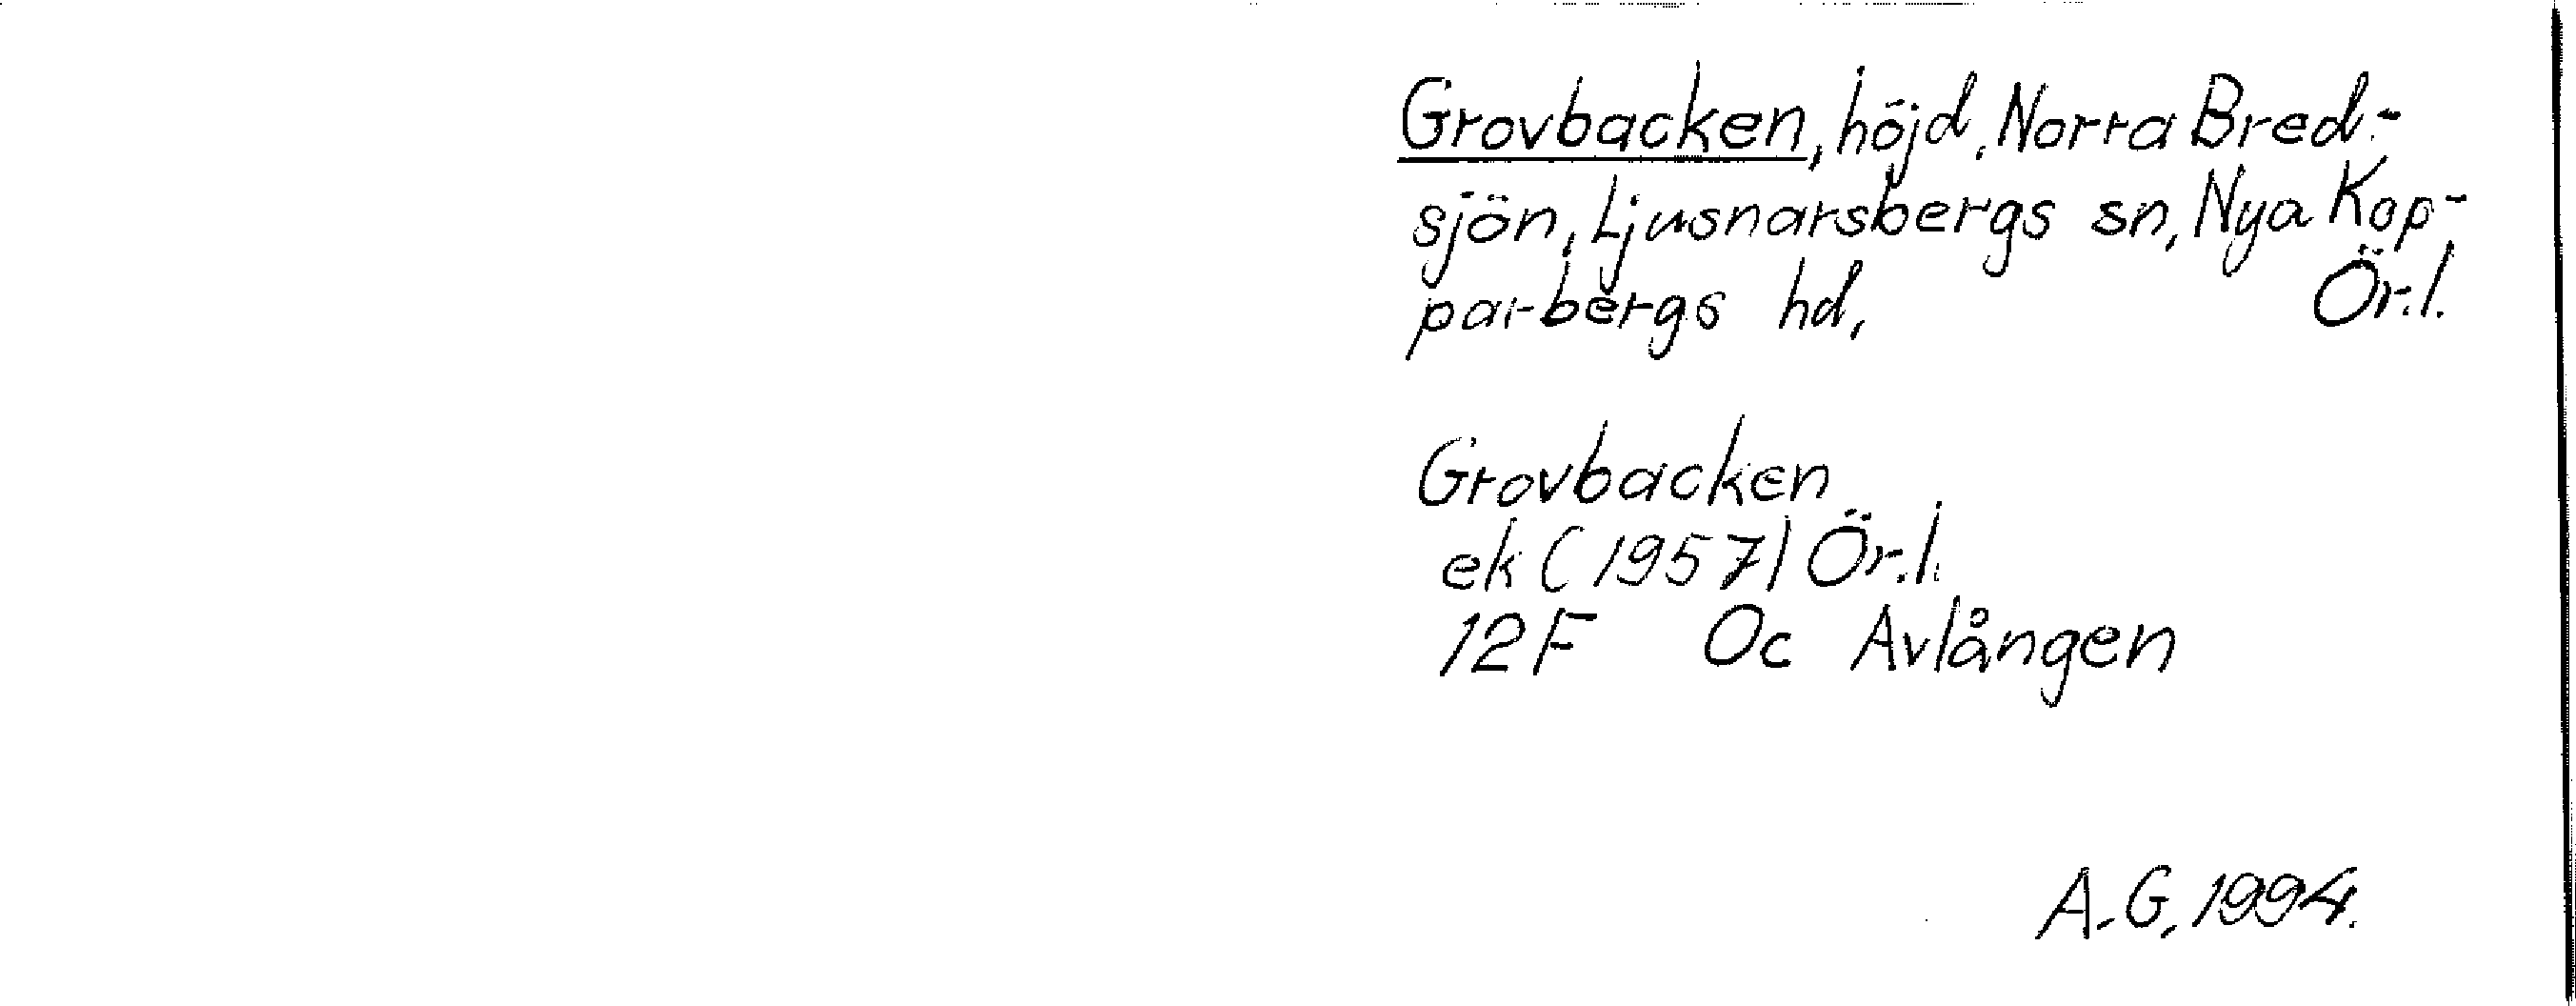 Grovbacken, höjd, Norra Bred-
sjön, Ljusnarsbergs sn, Nya Kop-
parbergs hd, Ör.l.
Grovbacken
ek (1957) Ör.l.
12F 0c Avlången
A.G. 1994.